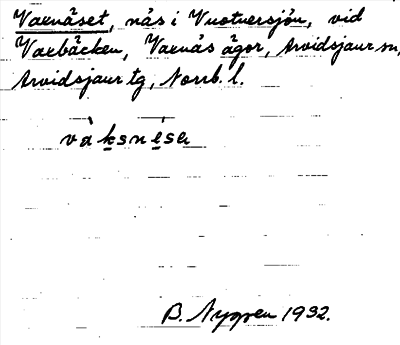 Vaxnäset, näs i Vuotnersjön, vid
Vaxbäcken, Vaxnäs ägor, Arvidsjaur sn,
Arvidsjaur tg, Norrb. l.
vàksnésa
B. Nygren 1932.